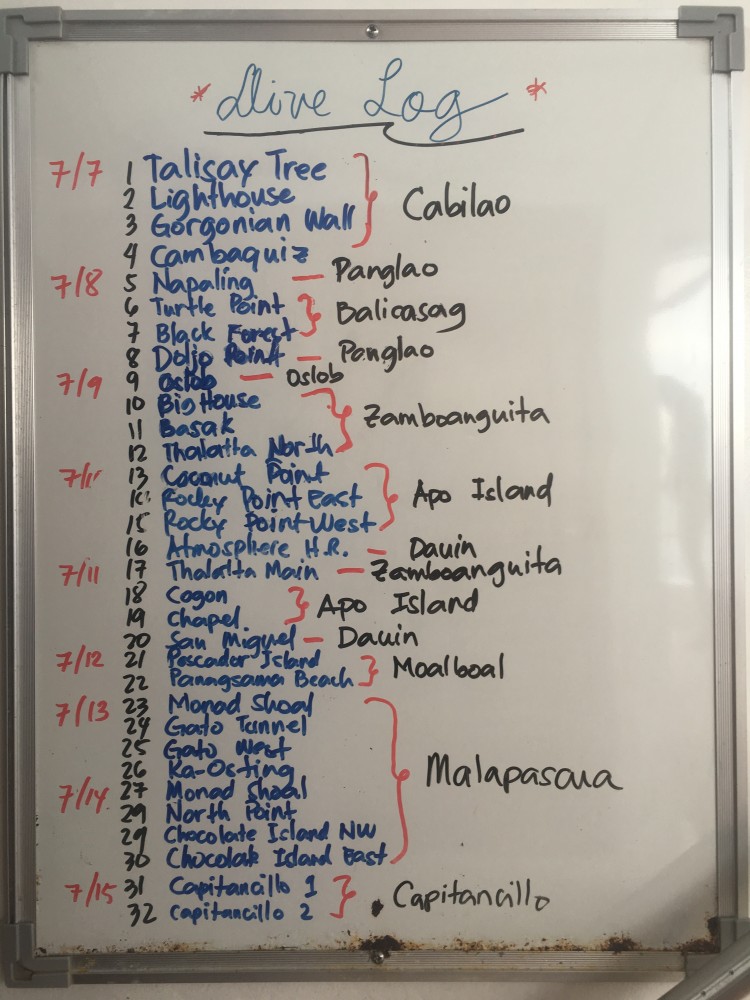 * Dive Log *
7/7 1 Talisay Tree
2 Lighthouse Cabilao
3 Gorgonian Wall
4 Cambaquiz
7/8 5 Napaling — Panglao
6 Turtle Point Balicasag
7 Black Forest
8 Doljo Point — Panglao
7/9 9 Oslob — Oslob
10 Big House Zamboanguita
11 Basak
12 Thalatta North
13 Coconut Point
Rocky Point East Apo Island
15 Rocky Point West
16 Atmosphere H.R. — Dauin
7/11 17 Thalatta Main — Zamboanguita
18 Cogon Apo Island
19 Chapel
20 San Miguel — Dauin
7/12 21 Pescador Island Moalboal
22 Panagsama Beach
7/13 23 Monad Shoal
24 Gato Tunnel
25 Gato West
26 Ka-Osting Malapascua
7/14 27 Monad Shoal
29 North Point
29 Chocolate Island NW
30 Chocolate Island East
7/15 31 Capitancillo 1 Capitancillo
32 Capitancillo 2